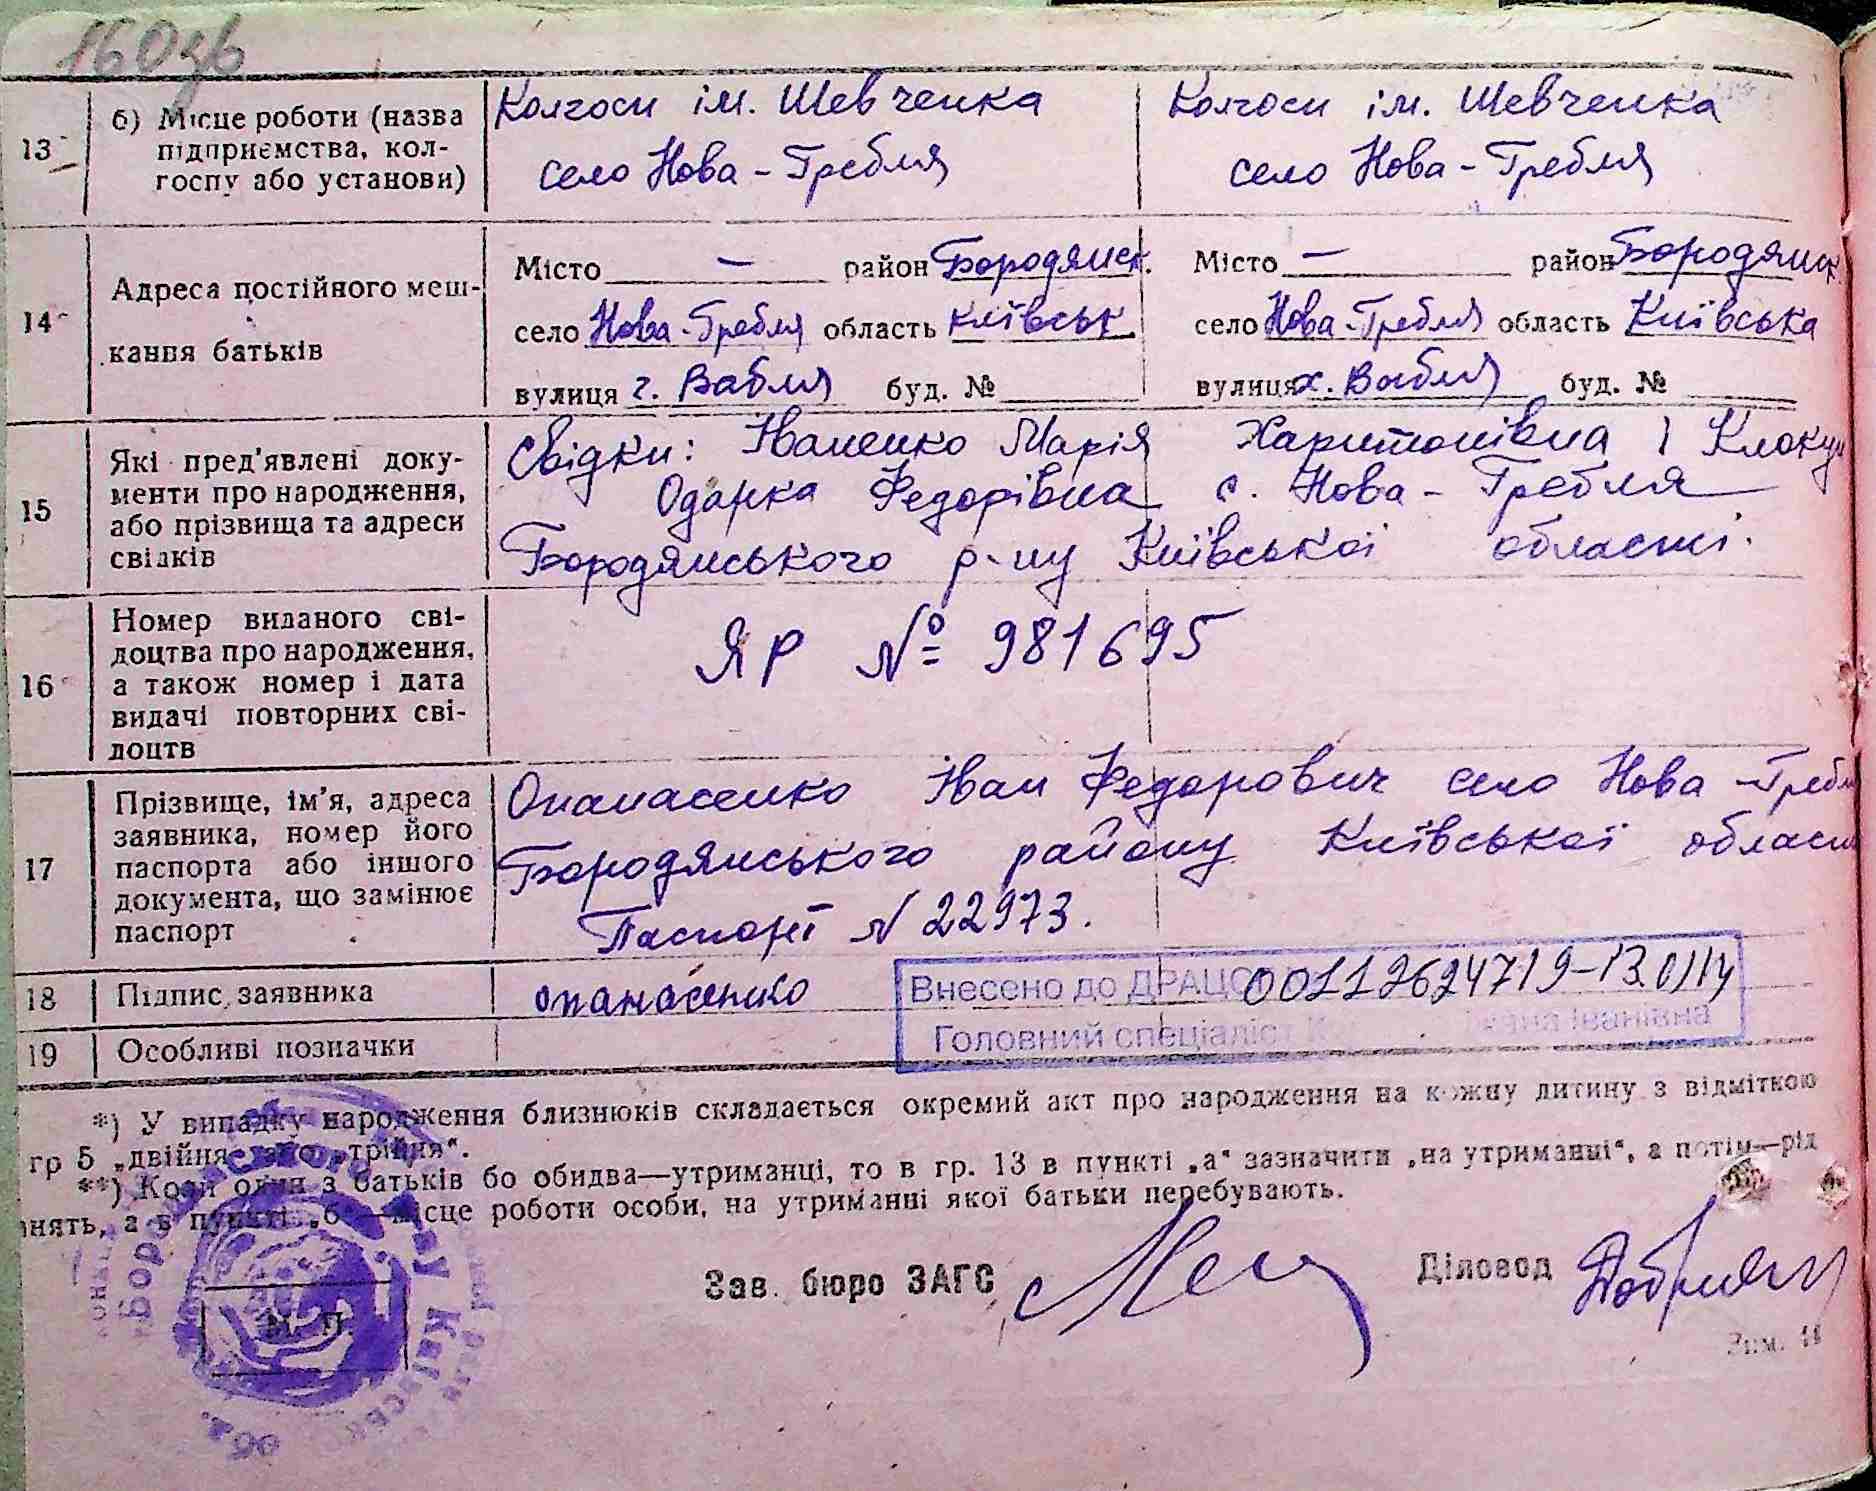 160зв
13
б) Місце роботи (назва
підприємства, кол-
госпу або установи)
Колгосп ім. Шевченка
село Нова-Гребля
Колгосп ім. Шевченка
село Нова-Гребля
14
Адреса постійного меш-
кання батьків
Місто — район Бородянськ.
село Нова-Гребля область Київськ
вулиця г. Вабля буд. №
Місто — район Бородянськ
село Нова-Гребля область Київська
вулиця х. Вабля буд. №
15
Які пред'явлені доку-
менти про народження,
або прізвища та адреси
свідків
Свідки: Іваненко Марія Харитонівна і
Одарка Федорівна с. Нова-Гребля
Бородянського р-ну Київської області.
16
Номер виданого сві-
доцтва про народження,
а також номер і дата
видачі повторних сві-
доцтв
ЯР № 981695
17
Прізвище, ім'я, адреса
заявника, номер його
паспорта або іншого
документа, що замінює
паспорт
Опанасенко Іван Федорович село Нова-Гребл
Бородянського району Київської област
Паспорт N 22973.
18
Підпис заявника
опанасенко
Внесено до ДРАЦС 00112624719-13.01.14
Головний спеціаліст Іванівна
19
Особливі позначки
*) У випадку народження близнюків складається окремий акт про народження на кожну дитину з відміткою
гр 5 „двійня" або „трійня".
**) Коли один з батьків бо обидва—утриманці, то в гр. 13 в пункті „а" зазначити „на утриманні", а потім—рід
анять, а в пункті „б"—місце роботи особи, на утриманні якої батьки перебувають.
Зав. бюро ЗАГС
Діловод
М. П.